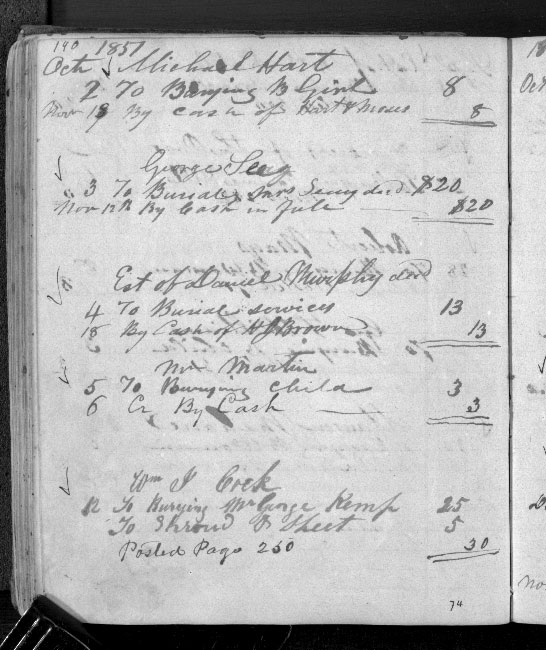 140 1851
Octr Michael Hart
2 To Burying B Girl 8
Novr 18 By cash of Hart & Moses 8
George Seeg
3 To Burial Mrs Seeng decd $20
Nov 12 By Cash in full $20
Est of Daniel Murphy decd
4 To Burial services 13
18 By Cash of H J Brown 13
Mr Martin
5 To Burying Child 3
6 Cr By Cash 3
Wm J Cock
12 To Burying Mr George Kemp 25
To Shroud & Sheet 5
Posted Page 250 30
74
18
Oct
No